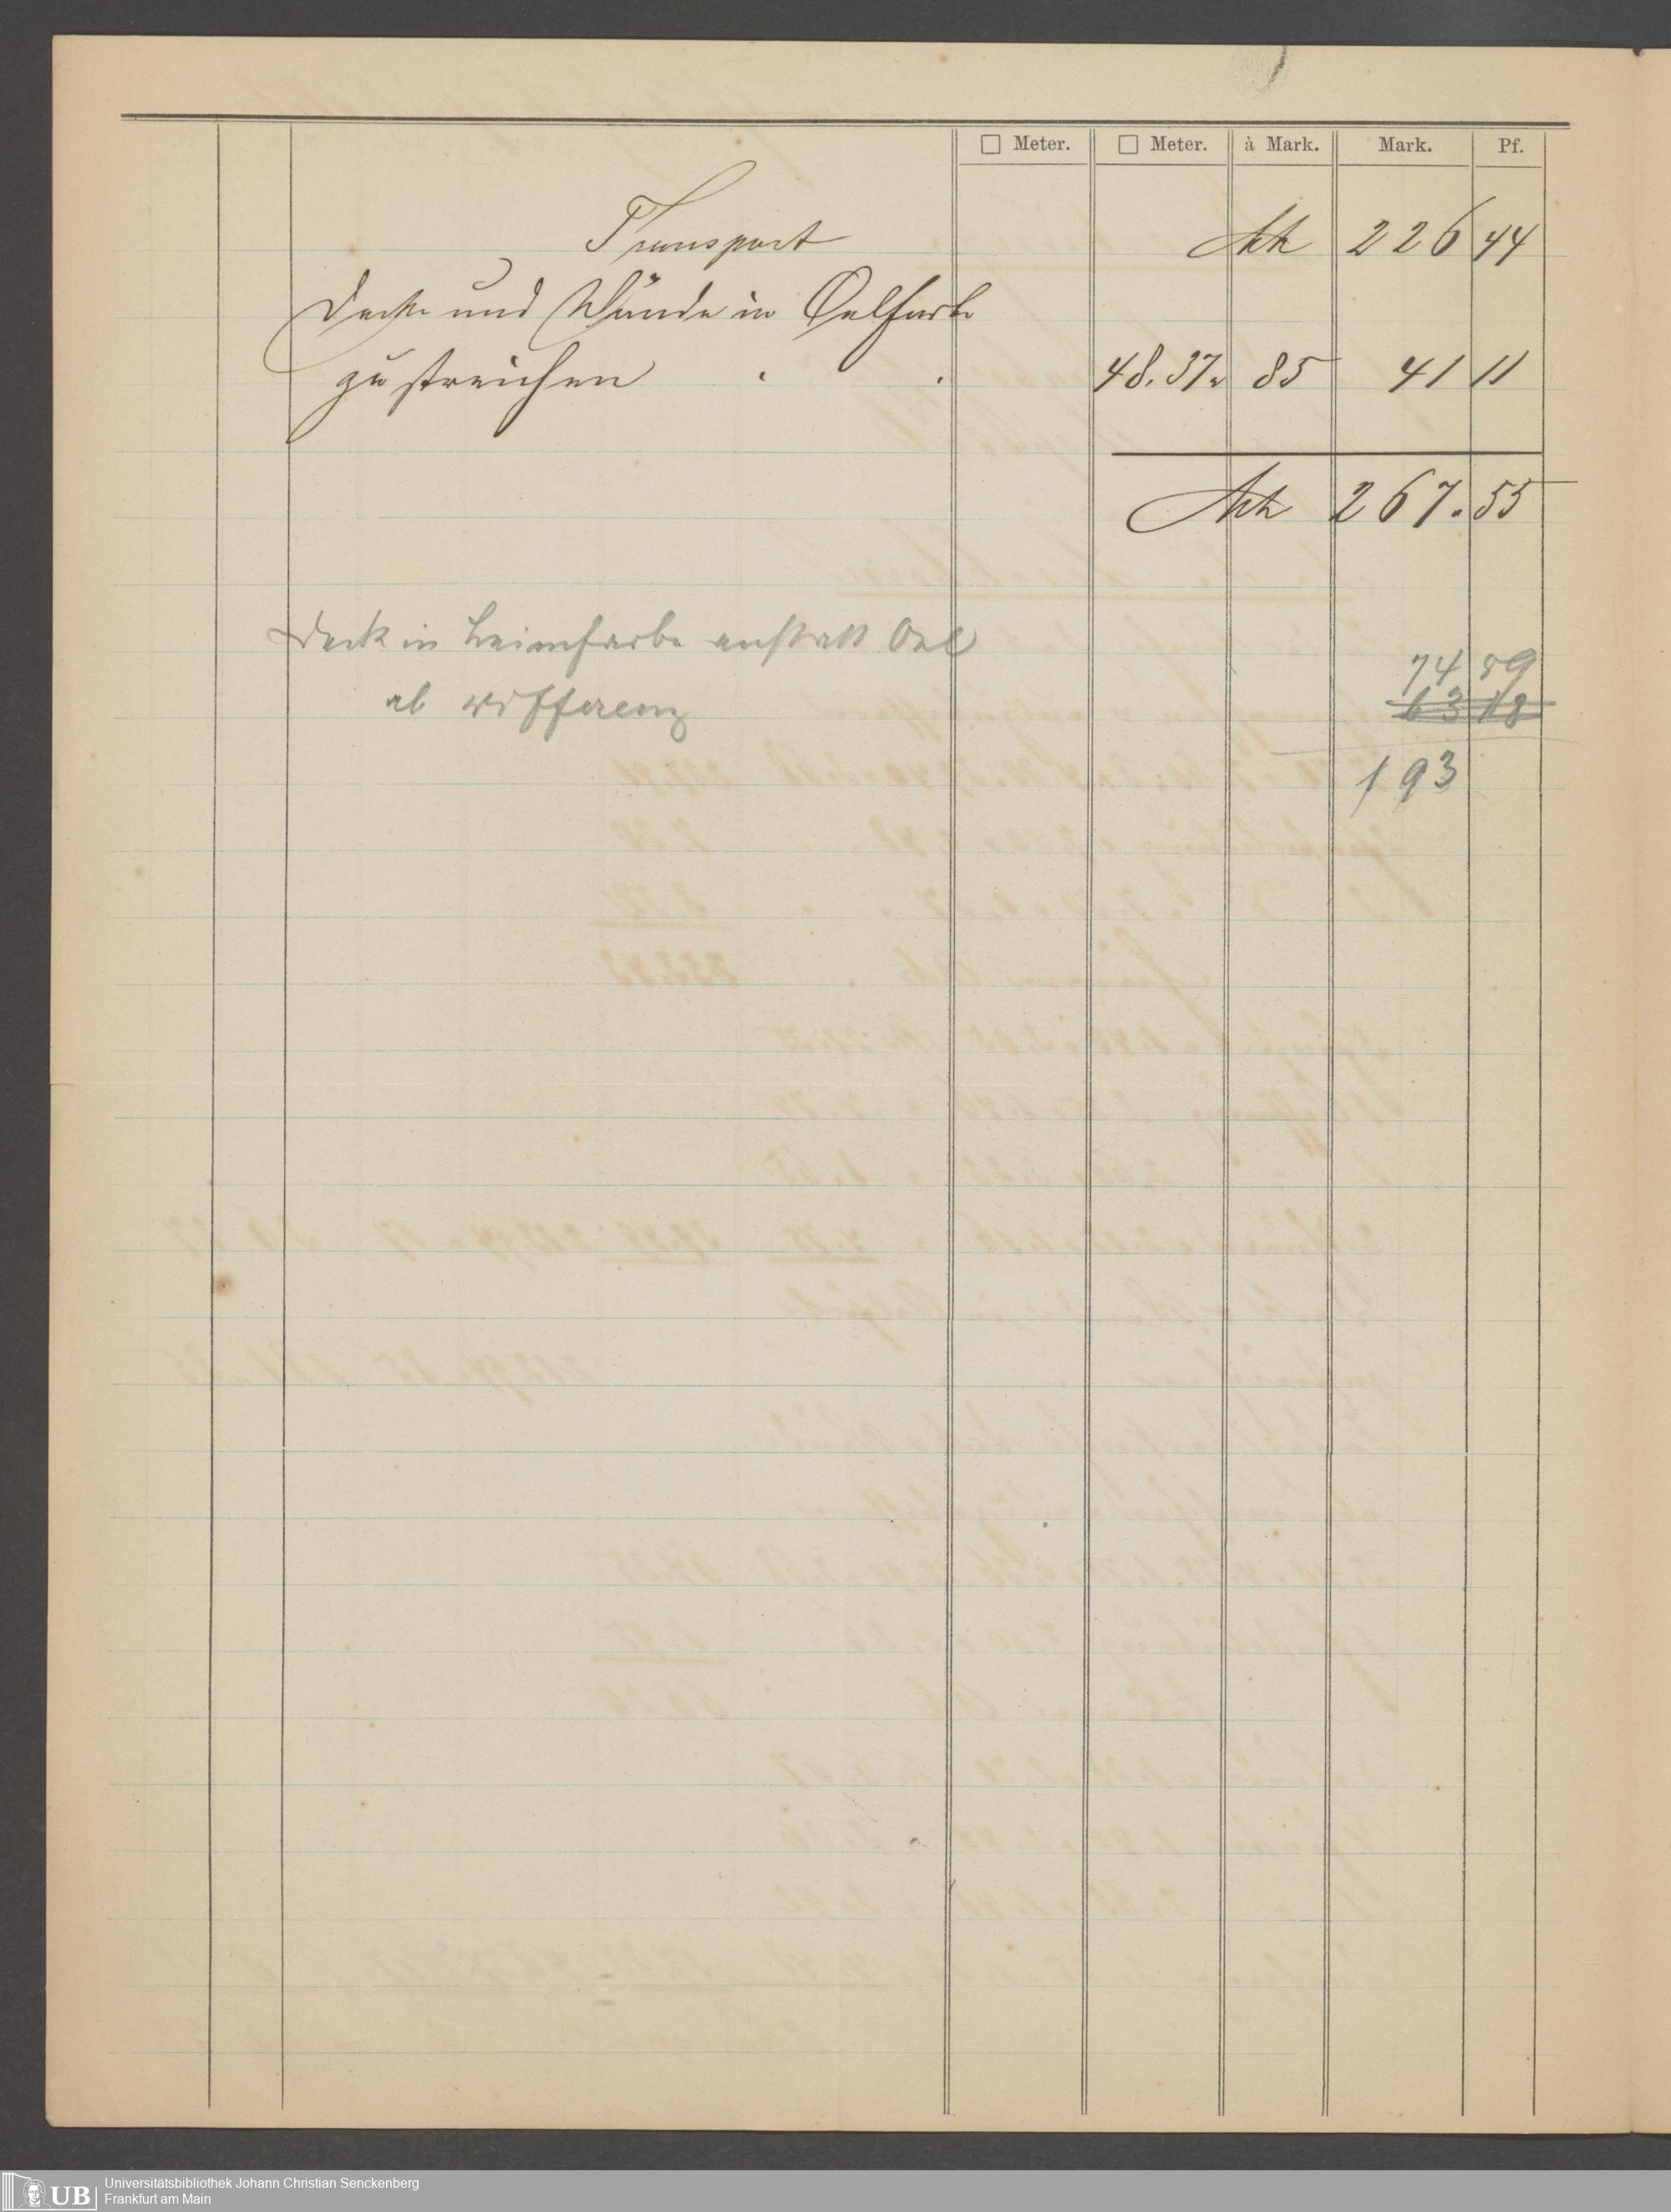 □ Meter. □ Meter. à Mark. Mark. Pf.
Transport Mk 226 44
Decke und Wände in Oelfarbe
zu streichen . . 48.37 85 41 11
Mk 267.55
Deck in Leimfarbe anstatt Oel
74 59
ab Differenz 63 18
193
UB Universitätsbibliothek Johann Christian Senckenberg
Frankfurt am Main